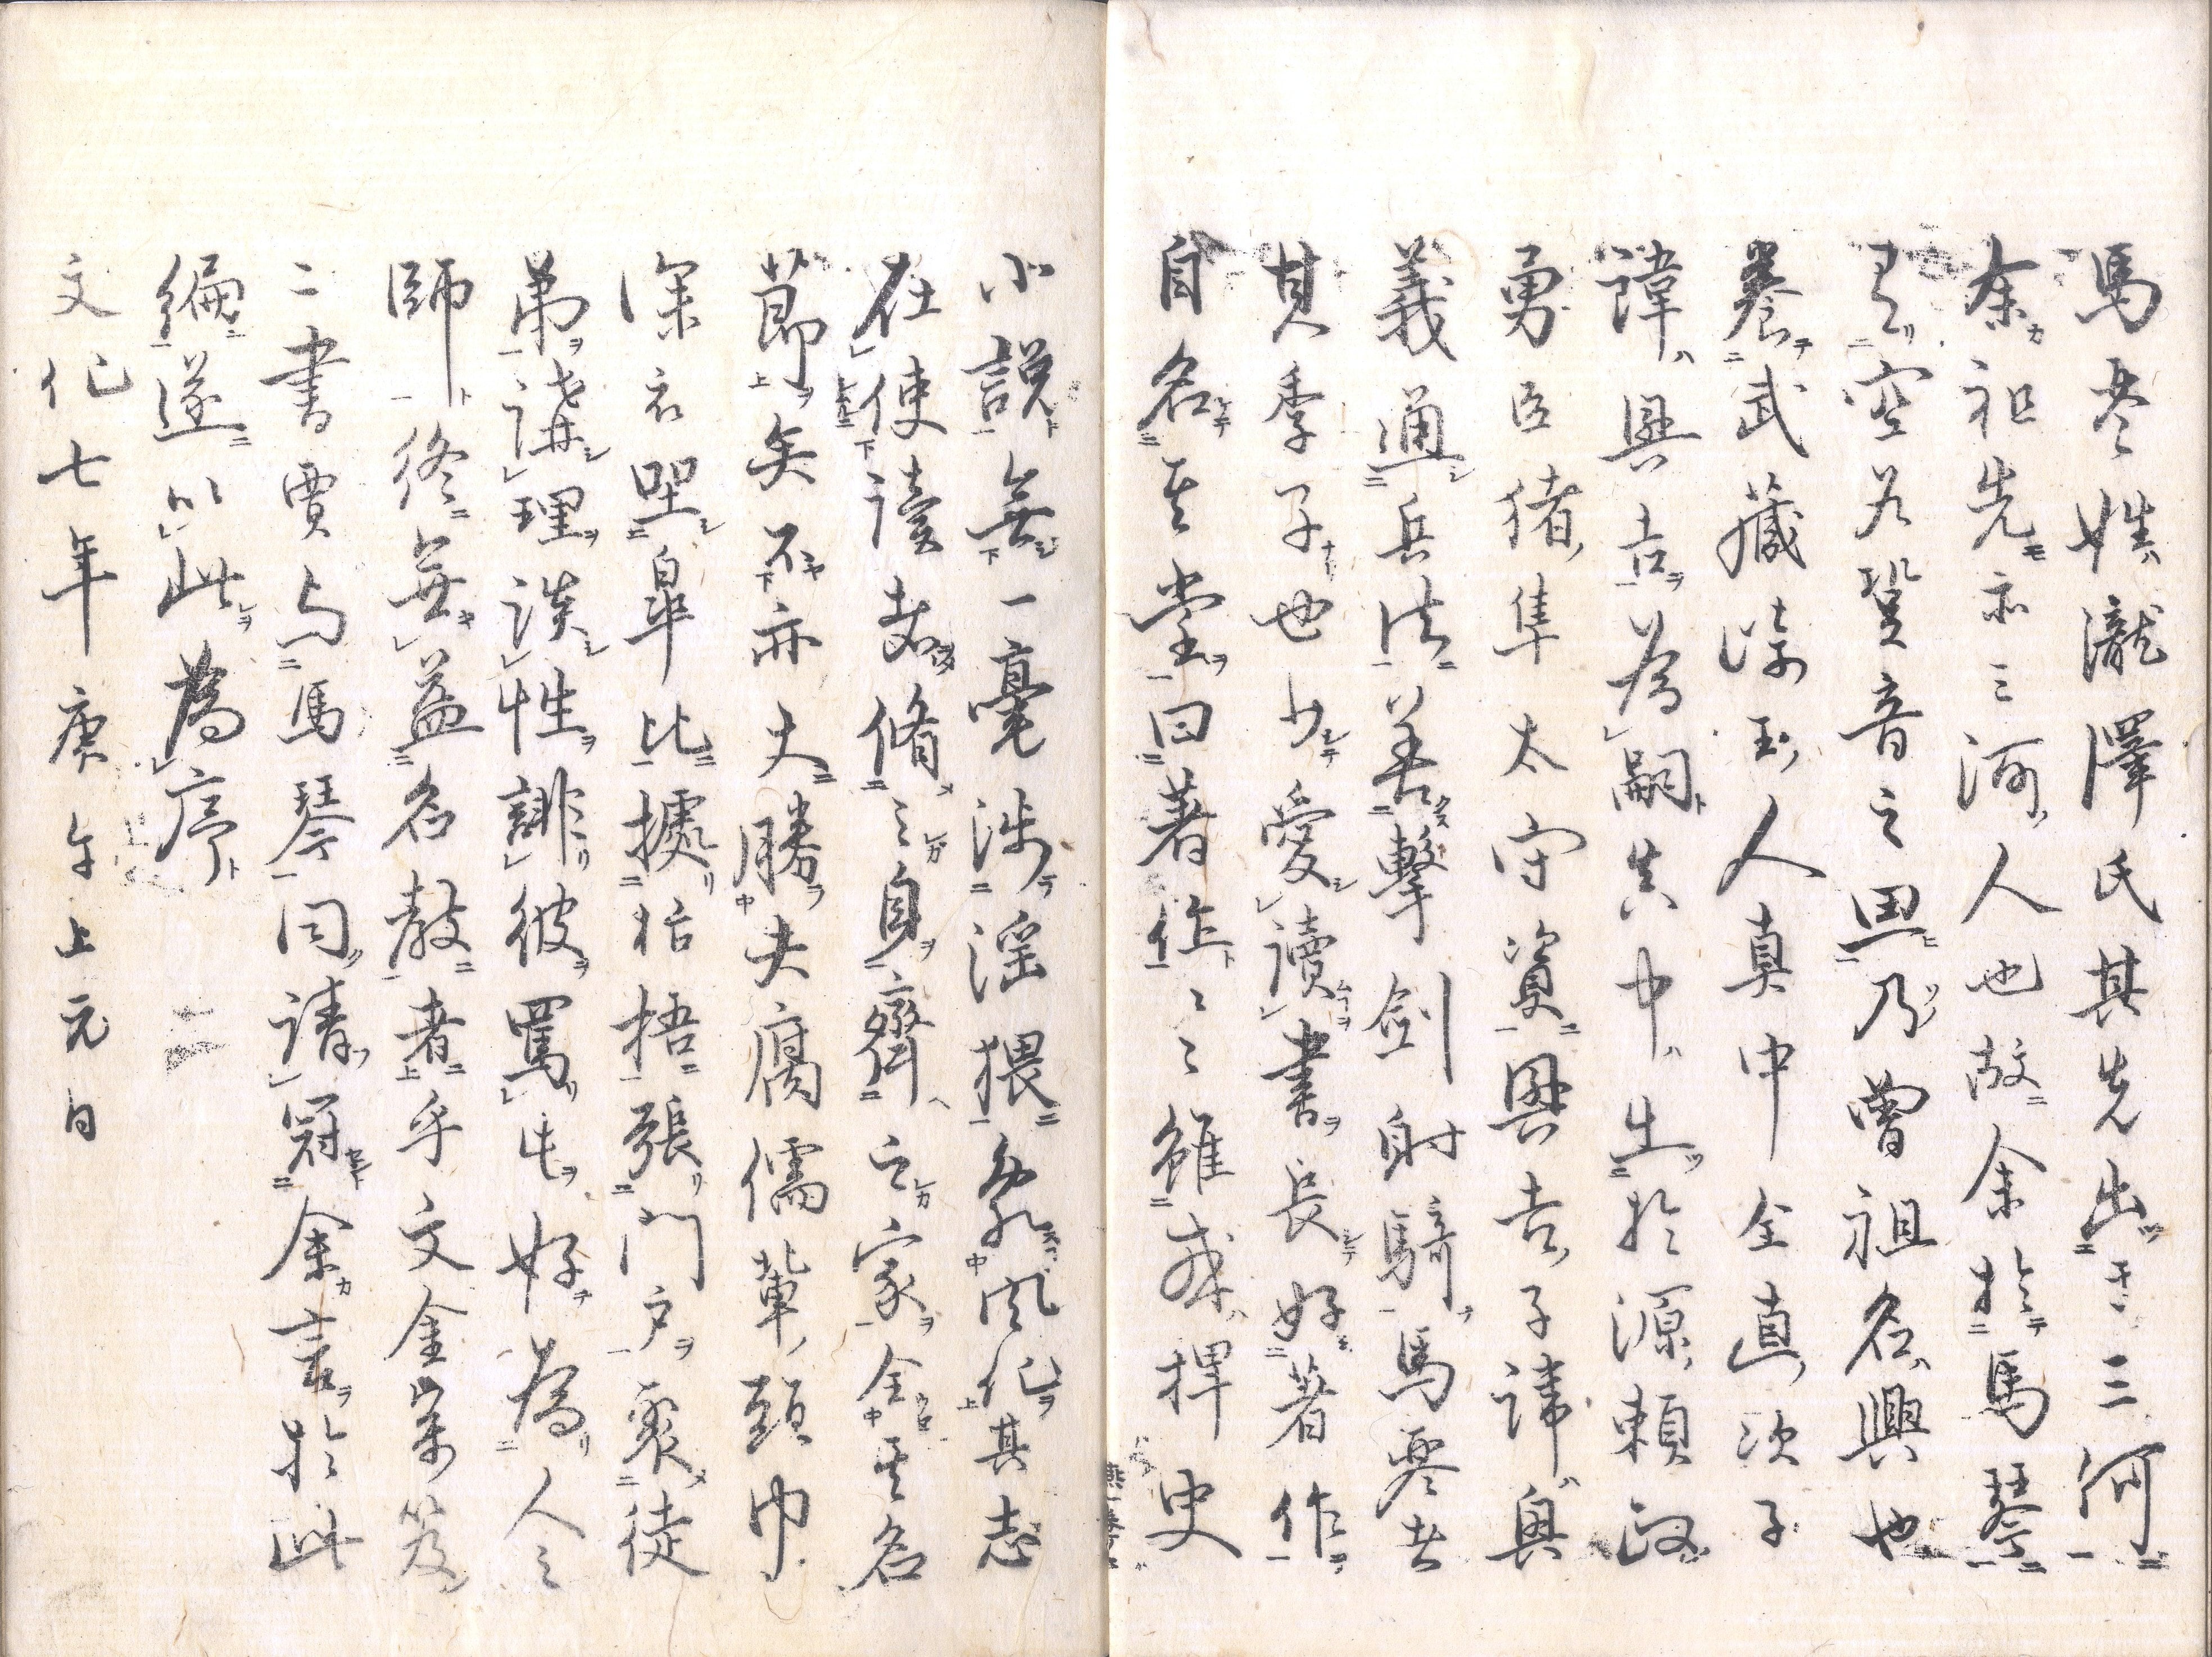 馬琴姓瀧澤氏其先出于三河
余祖先亦三河人也故余於馬琴
有空谷跫音之思乃曾祖名興也
養武藏川越人真中全直次子
諱興吉為嗣真中生於源頼政
勇臣猪隼太守資興吉子諱興
義通兵法善擊劍射騎馬琴者
其季子也少愛讀書長好著作
自名其堂曰著作々々雖或稗史
小説無一毫涉淫猥敗風化其志
在使讀者脩之身齊之家全其名
節矣不亦丈勝夫腐儒輩頭巾
深衣坐皐比據梧張門戶聚徒
弟講理談性誹彼罵此好為人之
師終無益名教者乎文金榮
二書賈与馬琴同請冠余言於此
編遂以此為序
文化七年庚午上元日